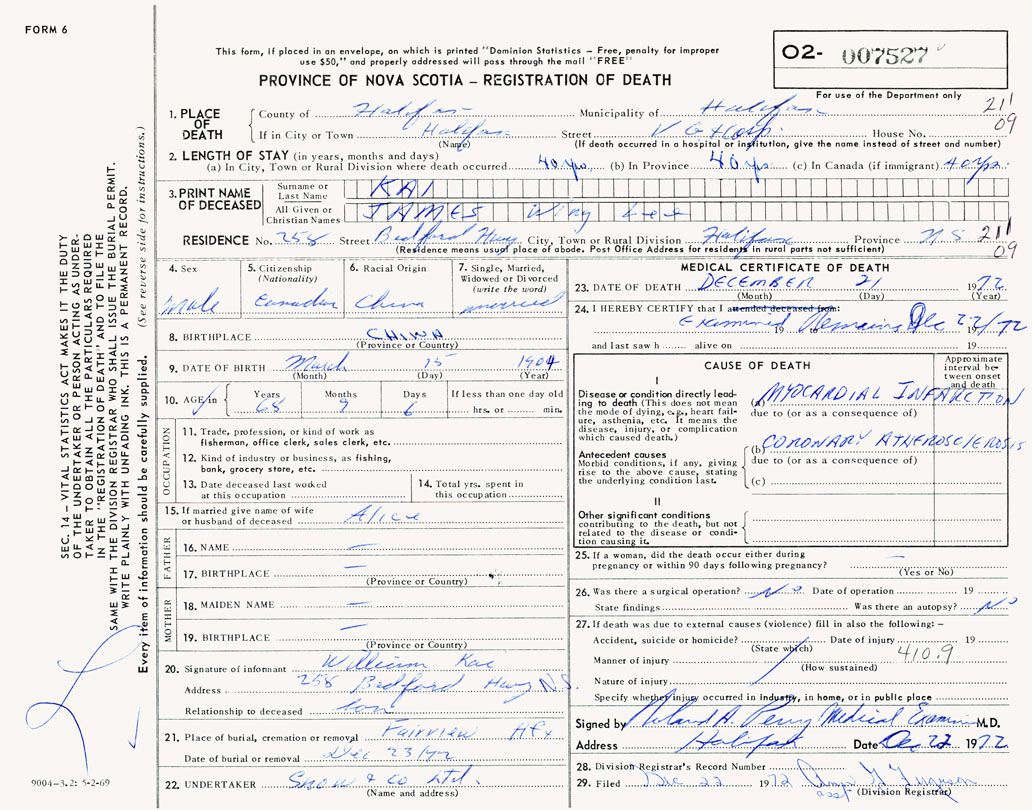 FORM 6
This form, if placed in an envelope, on which is printed "Dominion Statistics – Free, penalty for improper
use $50," and properly addressed will pass through the mail "FREE"
PROVINCE OF NOVA SCOTIA – REGISTRATION OF DEATH
O2- 007527
For use of the Department only
211
09
1. PLACE OF DEATH
County of Halifax Municipality of Halifax
If in City or Town Halifax Street V G Hosp. House No.
(Name) (If death occurred in a hospital or institution, give the name instead of street and number)
2. LENGTH OF STAY (in years, months and days)
(a) In City, Town or Rural Division where death occurred 40 yrs. (b) In Province 40 yrs (c) In Canada (if immigrant) 40 yrs.
3. PRINT NAME OF DECEASED
Surname or Last Name KAI
All Given or Christian Names JAMES Wing Lee
RESIDENCE No. 258 Street Bedford Hwy City, Town or Rural Division Halifax Province N.S.
(Residence means usual place of abode. Post Office Address for residents in rural parts not sufficient)
211
09
4. Sex
Male
5. Citizenship
(Nationality)
Canadian
6. Racial Origin
China
7. Single, Married,
Widowed or Divorced
(write the word)
married
8. BIRTHPLACE CHINA
(Province or Country)
9. DATE OF BIRTH March 15 1904
(Month) (Day) (Year)
10. AGE in Years Months Days If less than one day old
68 9 6 hrs. or min.
OCCUPATION
11. Trade, profession, or kind of work as
fisherman, office clerk, sales clerk, etc.
12. Kind of industry or business, as fishing,
bank, grocery store, etc.
13. Date deceased last worked
at this occupation
14. Total yrs. spent in
this occupation
15. If married give name of wife
or husband of deceased Alice
FATHER
16. NAME —
17. BIRTHPLACE —
(Province or Country)
MOTHER
18. MAIDEN NAME —
19. BIRTHPLACE —
(Province or Country)
20. Signature of informant William Kai
Address 258 Bedford Hwy N.S.
Relationship to deceased Son
21. Place of burial, cremation or removal Fairview Hfx
Date of burial or removal Dec 23/72
22. UNDERTAKER Snow & Co Ltd.
(Name and address)
MEDICAL CERTIFICATE OF DEATH
23. DATE OF DEATH DECEMBER 21 1972
(Month) (Day) (Year)
24. I HEREBY CERTIFY that I attended deceased from:
Examined Remains Dec 22/72
19 to 19
and last saw h alive on 19
CAUSE OF DEATH
Approximate
interval be-
tween onset
and death
I
Disease or condition directly lead-
ing to death (This does not mean
the mode of dying, e.g., heart fail-
ure, asthenia, etc. It means the
disease, injury, or complication
which caused death.)
(a) MYOCARDIAL INFARCTION
due to (or as a consequence of)
Antecedent causes
Morbid conditions, if any, giving
rise to the above cause, stating
the underlying condition last.
(b) CORONARY ATHEROSCLEROSIS
due to (or as a consequence of)
(c)
II
Other significant conditions
contributing to the death, but not
related to the disease or condi-
tion causing it.
25. If a woman, did the death occur either during
pregnancy or within 90 days following pregnancy? —
(Yes or No)
26. Was there a surgical operation? No Date of operation 19
State findings Was there an autopsy? No
27. If death was due to external causes (violence) fill in also the following: –
Accident, suicide or homicide? Date of injury 19
(State which)
Manner of injury 410.9
(How sustained)
Nature of injury
Specify whether injury occurred in industry, in home, or in public place
Signed by Roland A. Perry Medical Examiner M.D.
Address Halifax Date Dec 22 1972
28. Division Registrar's Record Number
29. Filed Dec 22 1972
asst (Division Registrar)
SEC. 14 – VITAL STATISTICS ACT MAKES IT THE DUTY
OF THE UNDERTAKER OR PERSON ACTING AS UNDER-
TAKER TO OBTAIN ALL THE PARTICULARS REQUIRED
IN THE "REGISTRATION OF DEATH" AND TO FILE THE
SAME WITH THE DIVISION REGISTRAR WHO SHALL ISSUE THE BURIAL PERMIT.
WRITE PLAINLY WITH UNFADING INK. THIS IS A PERMANENT RECORD.
Every item of information should be carefully supplied. (See reverse side for instructions.)
9004-3.2: 5-2-69